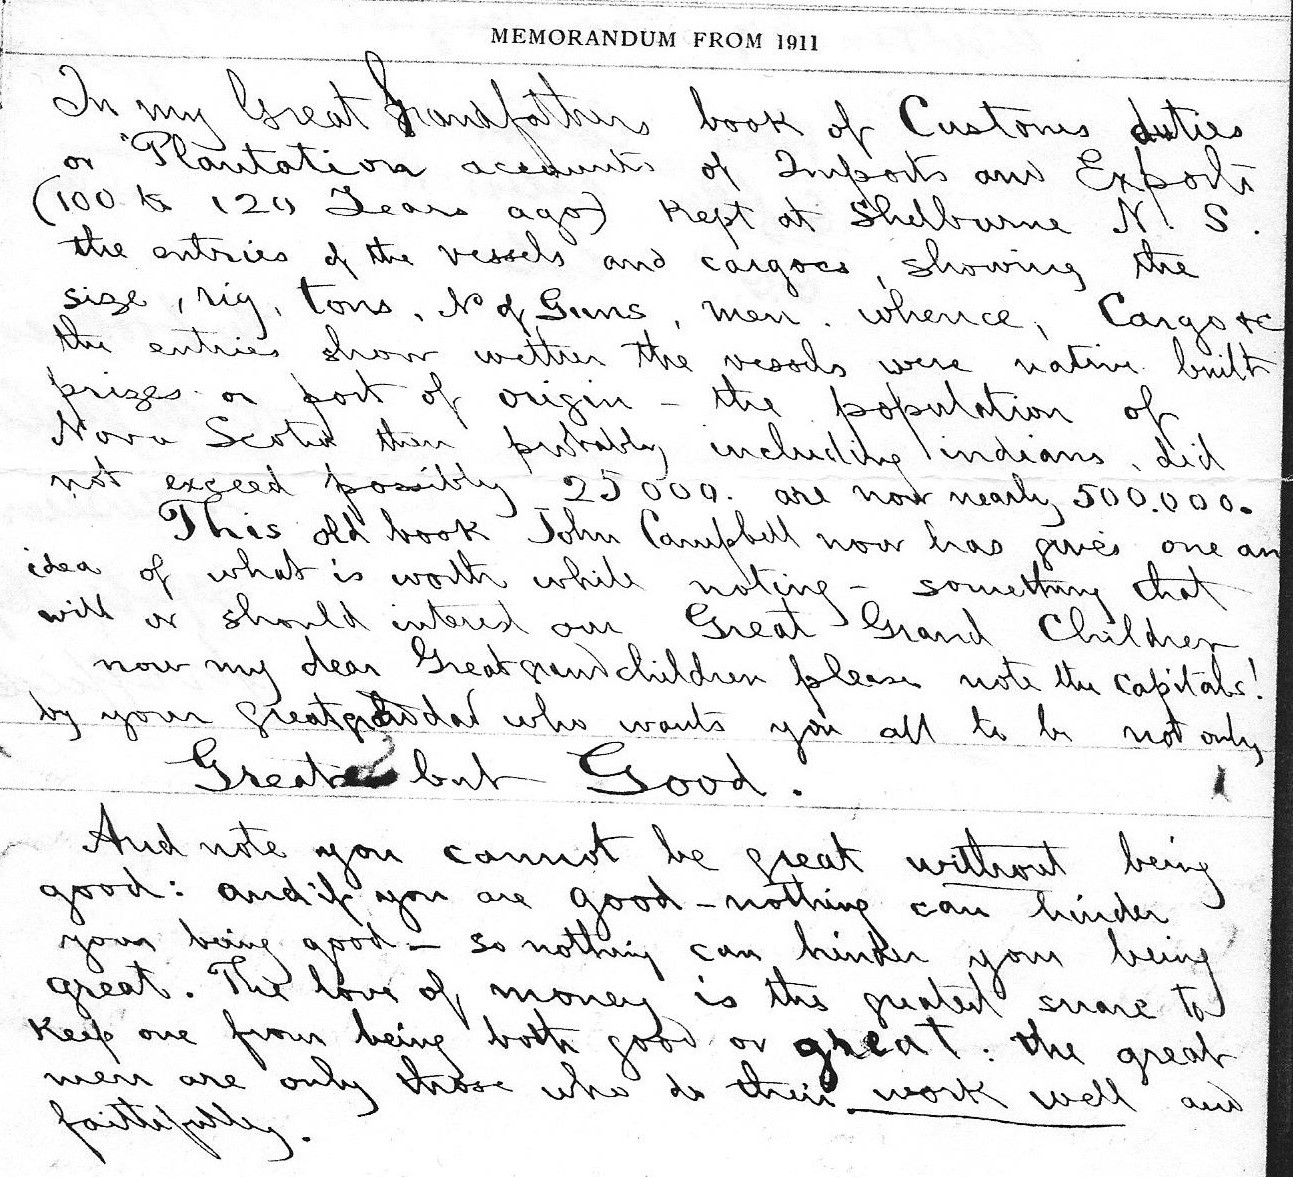 MEMORANDUM FROM 1911
In my Great Grandfathers book of Customs duties
or "Plantation accounts of Imports and Exports
(100 to 120 Years ago) kept at Shelburne N. S.
the entries of the vessels and cargoes, showing the
size, rig, tons, No of Guns, men, whence, Cargo &c
the entries show wether the vessels were native built
prizes or port of origin - the population of
Nova Scotia then probably including indians, did
not exceed possibly 25000. are now nearly 500.000.
This old book John Campbell now has gives one an
idea of what is worth while noting - something that
will or should interest our Great Grand Children
now my dear Great grand children please note the capitals!
by your great granddad who wants you all to be not only
Great but Good.
And note you cannot be great without being
good: and if you are good - nothing can hinder
your being good - so nothing can hinder your being
great. The love of money is the greatest snare to
keep one from being both good or great: the great
men are only those who do their work well and
faithfully.